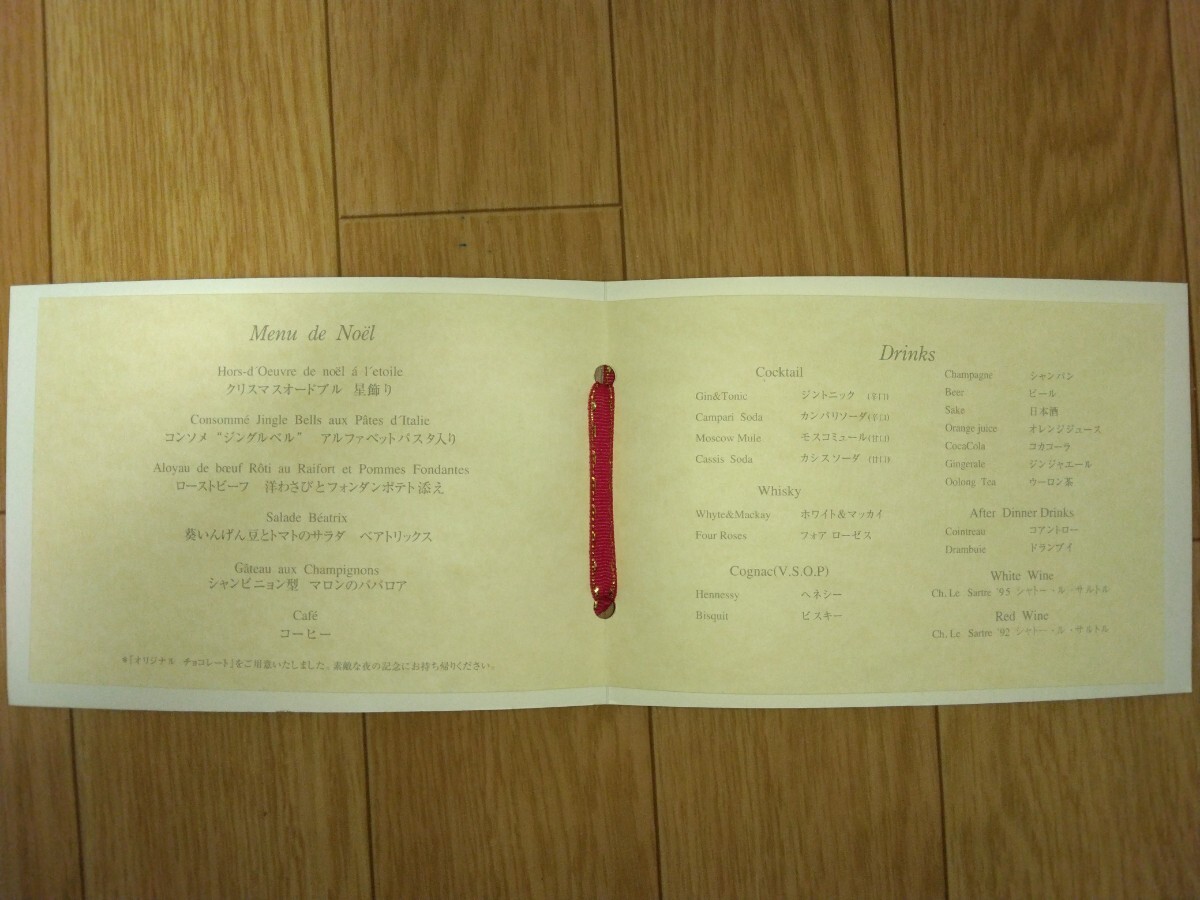 Menu de Noël
Hors-d'Oeuvre de noël á l'etoile
クリスマスオードブル 星飾り
Consommé Jingle Bells aux Pâtes d'Italie
コンソメ “ジングルベル” アルファベットパスタ入り
Aloyau de bœuf Rôti au Raifort et Pommes Fondantes
ローストビーフ 洋わさびとフォンダンポテト添え
Salade Béatrix
葵いんげん豆とトマトのサラダ ベアトリックス
Gâteau aux Champignons
シャンピニョン型 マロンのババロア
Café
コーヒー
*「オリジナル チョコレート」をご用意いたしました。素敵な夜の記念にお持ち帰りください。
Drinks
Cocktail
Gin&Tonic ジントニック (辛口)
Campari Soda カンパリソーダ(辛口)
Moscow Mule モスコミュール(甘口)
Cassis Soda カシスソーダ (甘口)
Whisky
Whyte&Mackay ホワイト&マッカイ
Four Roses フォア ローゼス
Cognac(V.S.O.P)
Hennessy ヘネシー
Bisquit ビスキー
Champagne シャンパン
Beer ビール
Sake 日本酒
Orange juice オレンジジュース
CocaCola コカコーラ
Gingerale ジンジャエール
Oolong Tea ウーロン茶
After Dinner Drinks
Cointreau コアントロー
Drambuie ドランブイ
White Wine
Ch, Le Sartre '95 シャトー・ル・サルトル
Red Wine
Ch, Le Sartre '92 シャトー・ル・サルトル